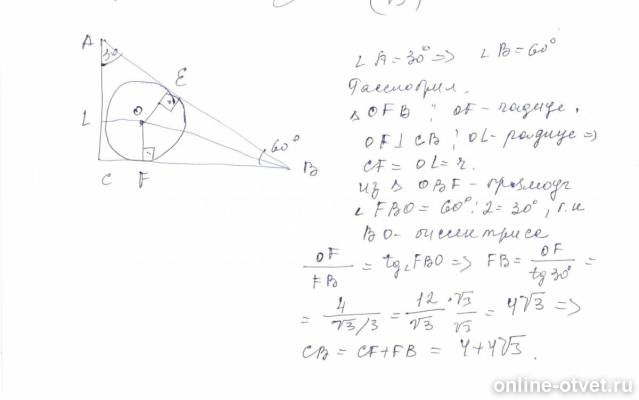 A
30
E
L
O
60°
C
F
B
∠ A = 30° => ∠ B = 60°
Рассмотрим
△ OFB ; OF - радиус,
OF ⊥ CB ; OL - радиус =>
CF = OL = r.
из △ OBF - прямоуг
∠ FBO = 60° : 2 = 30°, т.к
BO - биссектриса
OF/FB = tg∠FBO => FB = OF/tg30° =
= 4/(√3/3) = 12/√3 · √3/√3 = 4√3 =>
CB = CF + FB = 4 + 4√3.
online-otvet.ru